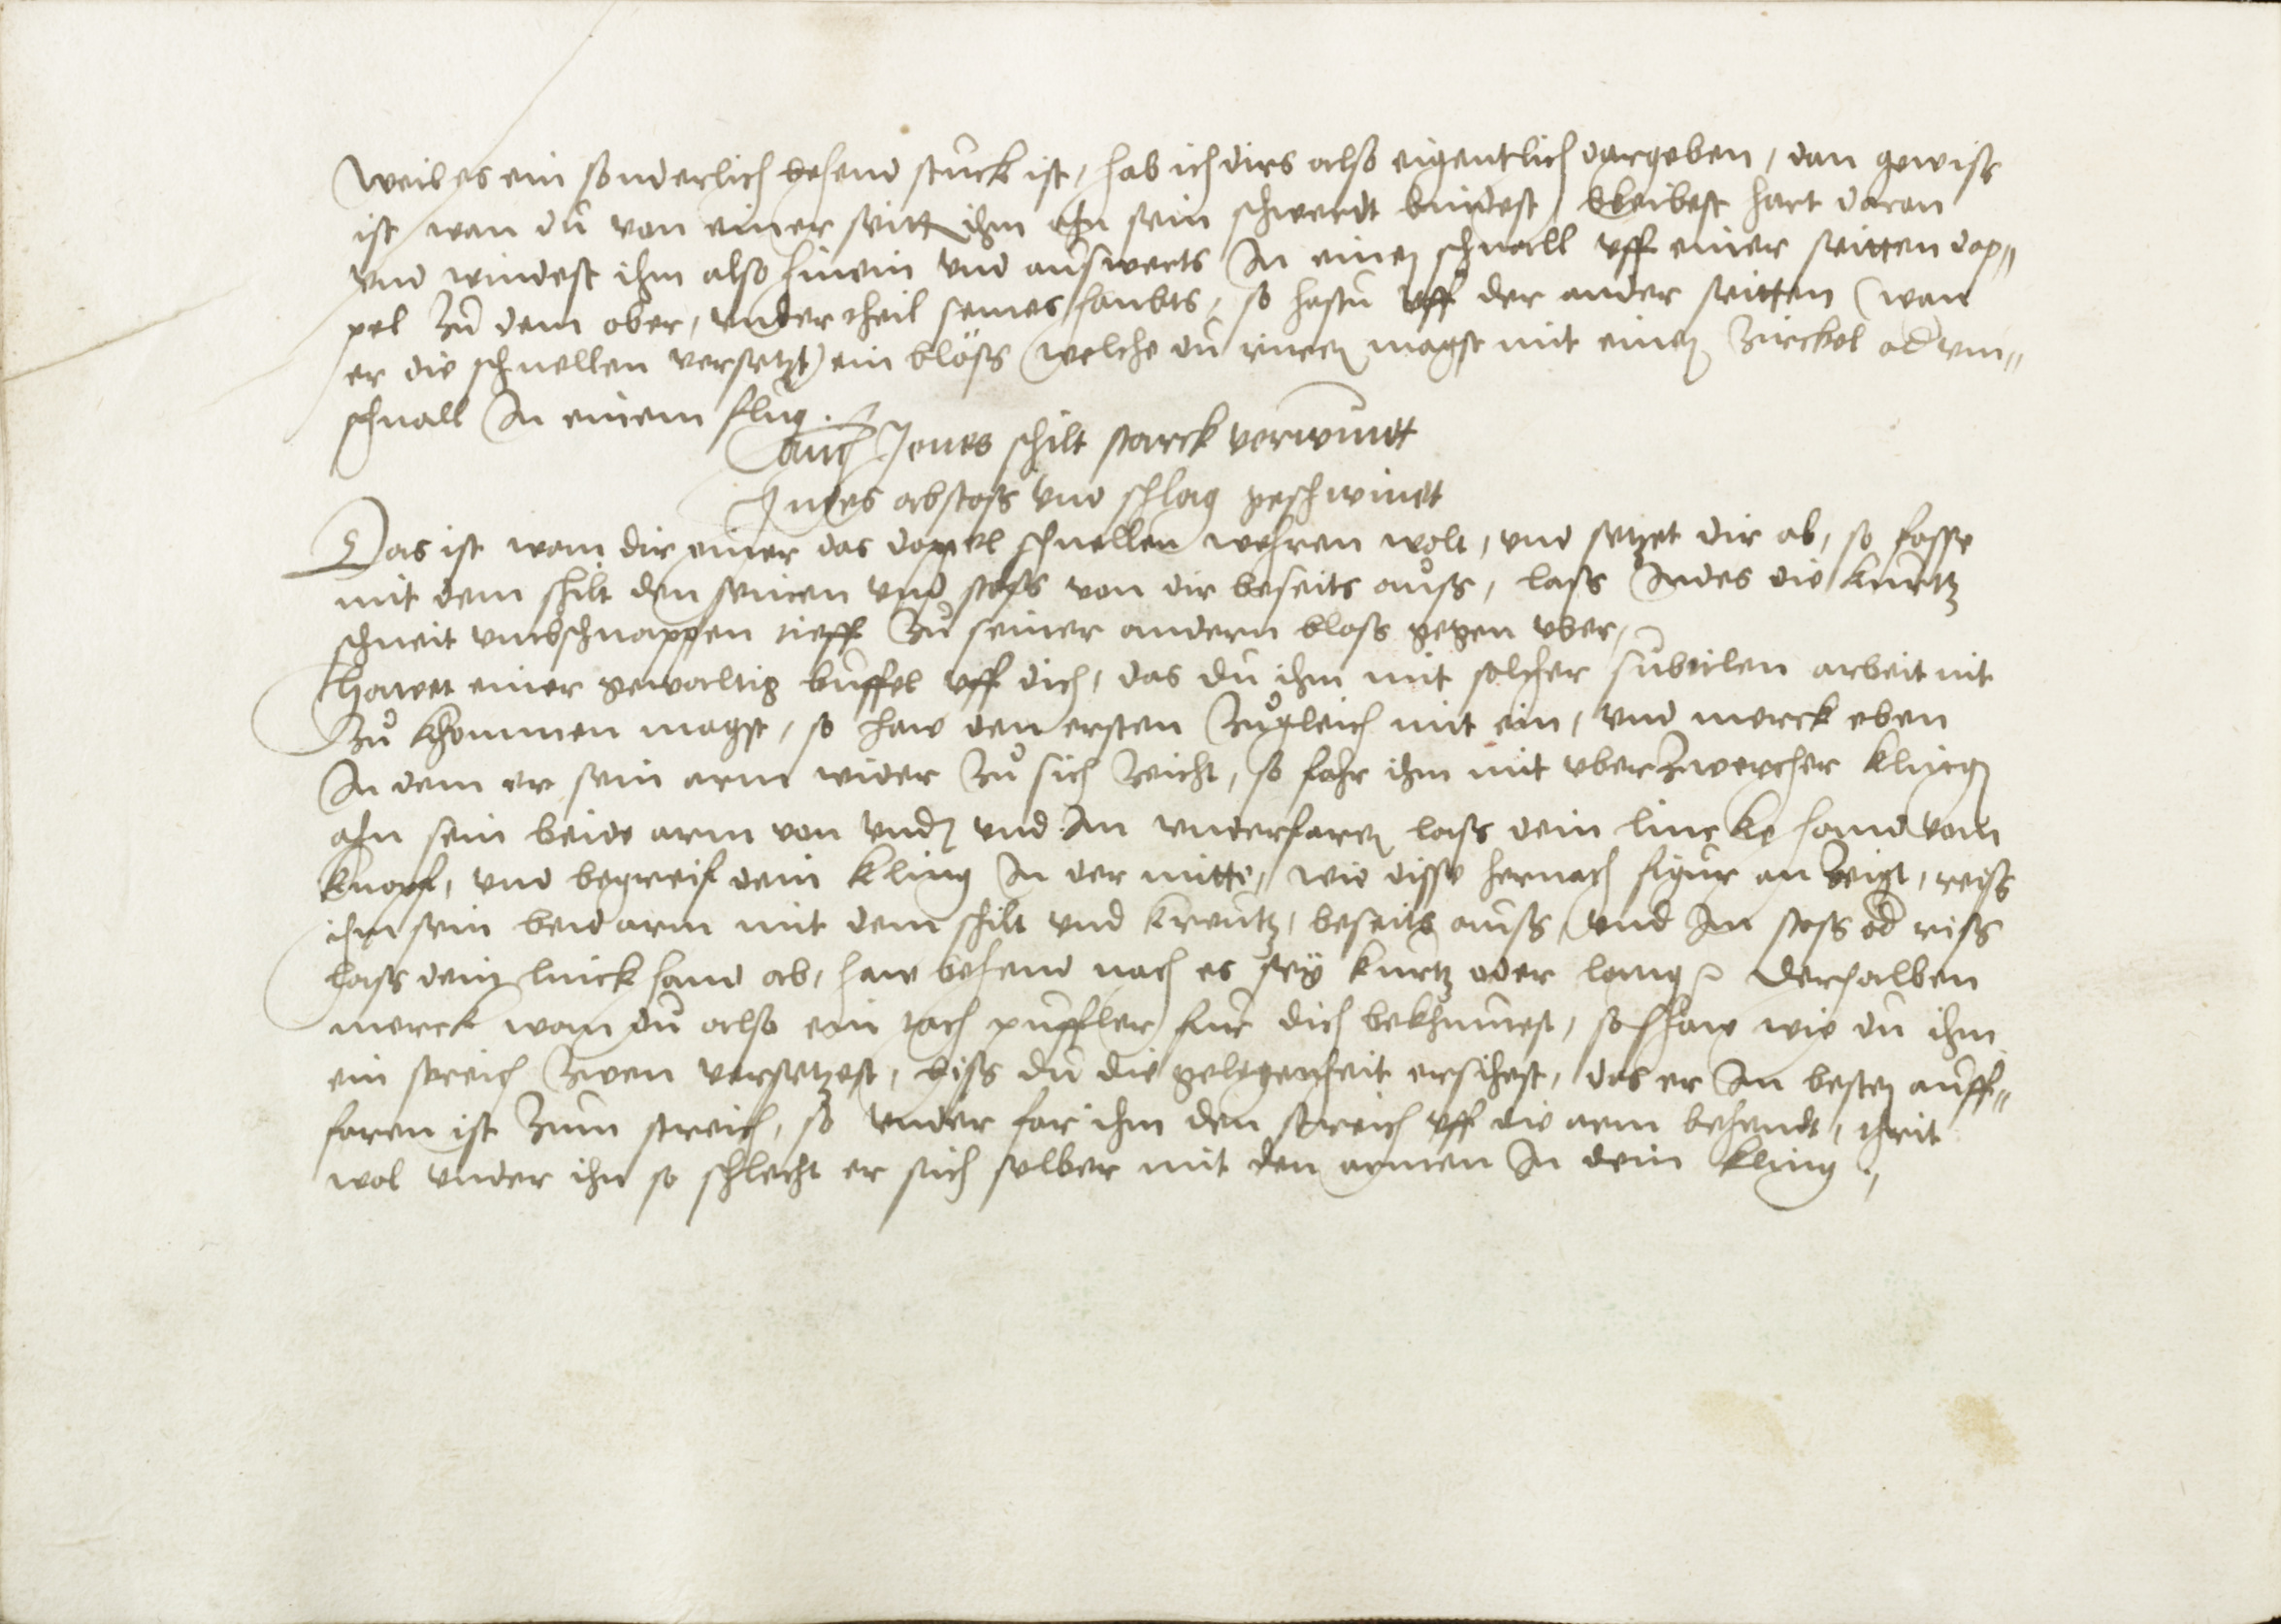 Weil es ein sonderlich behend stuck ist, hab ich dirs also eigentlich dargeben, dan gewiss
ist wan du von einer seitt ihm ahn sein schwerdt bindest, bleibest hart daran
vnd windest ihm also hinein vnd auswerts In einen schnall vff einer seitten dop„
pel zu dem ober, vnder theil seines haubts, so hastu vff der ander seitten (wan
er die schnellen versetzt) ein blöss welche du mit einem zirckel od
schnall In einem flug.
Auch Jenes schilt starck verwindt
Indes abstoss vnd schlag geschwindt
Das ist wan dir einer das doppel schnellen wehren wolt, vnd setzet dir ab, so fasse
mit dem schilt den seinen vnd stoss von dir beseits auss, lass Indes die kurtz
schneit vmbschnappen tieff zu seiner andern bloss gegen vber,
Hawet einer gewaltig buffel vff dich, das du ihm mit solcher subtilen arbeit nit
zu khommen magst, so haw den ersten zugleich mit ein, vnd merck eben
In dem er sein arm wider zu sich zeicht, so fahr ihm mit vberzwercher klingen
ahn sein beide arm von vnden vnd Im vnderfaren lass dein lincke hand vom
knopf, vnd begreif dein kling In der mitte, wie disse hernach figur an zeigt, reiss
ihm sein beid arm mit dem schilt vnd kreutz, beseits auss, vnd Im stoss od riss
lass dein linck hand ab, haw behend nach es sey kurtz oder lang Derhalben
merck wan du also ein puffler fur dich bekhumest, so schaw wie du ihm
ein streich zwen versetzest, biss du die gelegenheit ersihest, das er Im besten auff„
faren ist zum streich, so vnder far ihm den streich vff die arm behendt, thrit
wol vnder ihn so schlecht er sich selber mit den armen In dein kling.,